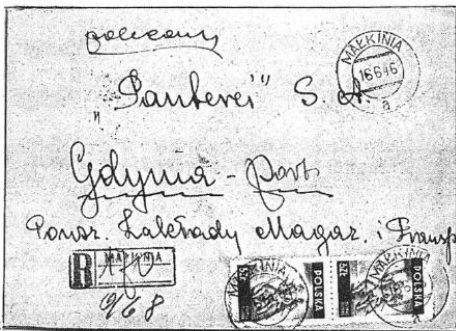 polecony
MAŁKINIA
16 6 46
a
"Panterei" S. A.
Gdynia - Port
Powsz. Zakłady Magaz. i Transp
R MAŁKINIA
968
MAŁKINIA POLSKA POLSKA